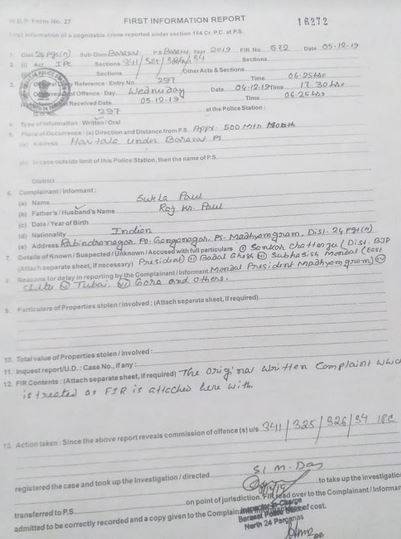 W.B.P. Form No. 27
FIRST INFORMATION REPORT
16272
First information of a cognizable crime reported under section 154 Cr. P.C. at P.S.
1. Dist 24 Pgs(N) Sub-Divn Barasat P.S. Barasat Year 2019 FIR No 672 Date 05-12-19
2. (i) Act IPC Sections 341/325/326/34
Sections Other Acts & Sections
Reference : Entry No. 297 Time 06.25 hrs
of Offence - Day. Wednesday Date 04-12-19 Time 17.30 hrs
Received Date 05-12-19 Time 06.25 hrs
297 at the Police Station :
4. Type of Information - Written / Oral
5. Place of Occurrence : (a) Direction and Distance from P.S. Appx. 500 Mtr North
(b) Address under Barasat PS
(c) In case outside limit of this Police Station, then the name of P.S.
District
6. Complainant / Informant :
(a) Name Sukla Paul
(b) Father's / Husband's Name Raj Kr. Paul
(c) Date / Year of Birth
(d) Nationality Indian
(e) Address Rabindranagar, Po- Ganganagar, Ps- Madhyamgram, Dist. 24 Pgs(N)
7. Details of Known / Suspected / Unknown / Accused with full particulars (i) Sankar Chatterjee (Dist. BJP
(Attach separate sheet, if necessary) President) (ii) Badal Ghosh (iii) Subhasish Mondal (East
8. Reasons for delay in reporting by the Complainant / Informant Mondal President Madhyamgram) (iv)
Tubai, Gora and others.
9. Particulars of Properties stolen / involved : (Attach separate sheet, if required)
10. Total value of Properties stolen / involved :
11. Inquest report / U.D. : Case No., if any :
12. FIR Contents : (Attach separate sheet, if required) The original written complaint which
is treated as FIR is attached here with.
13. Action taken : Since the above report reveals commission of offence (s) u/s 341/325/326/34 IPC
registered the case and took up the Investigation / directed SI M. Das
to take up the investigation
transferred to P.S. on point of jurisdiction. FIR read over to the Complainant / Informant
admitted to be correctly recorded and a copy given to the Complainant of cost.
Inspector-in-Charge
Barasat Police Station
North 24 Parganas